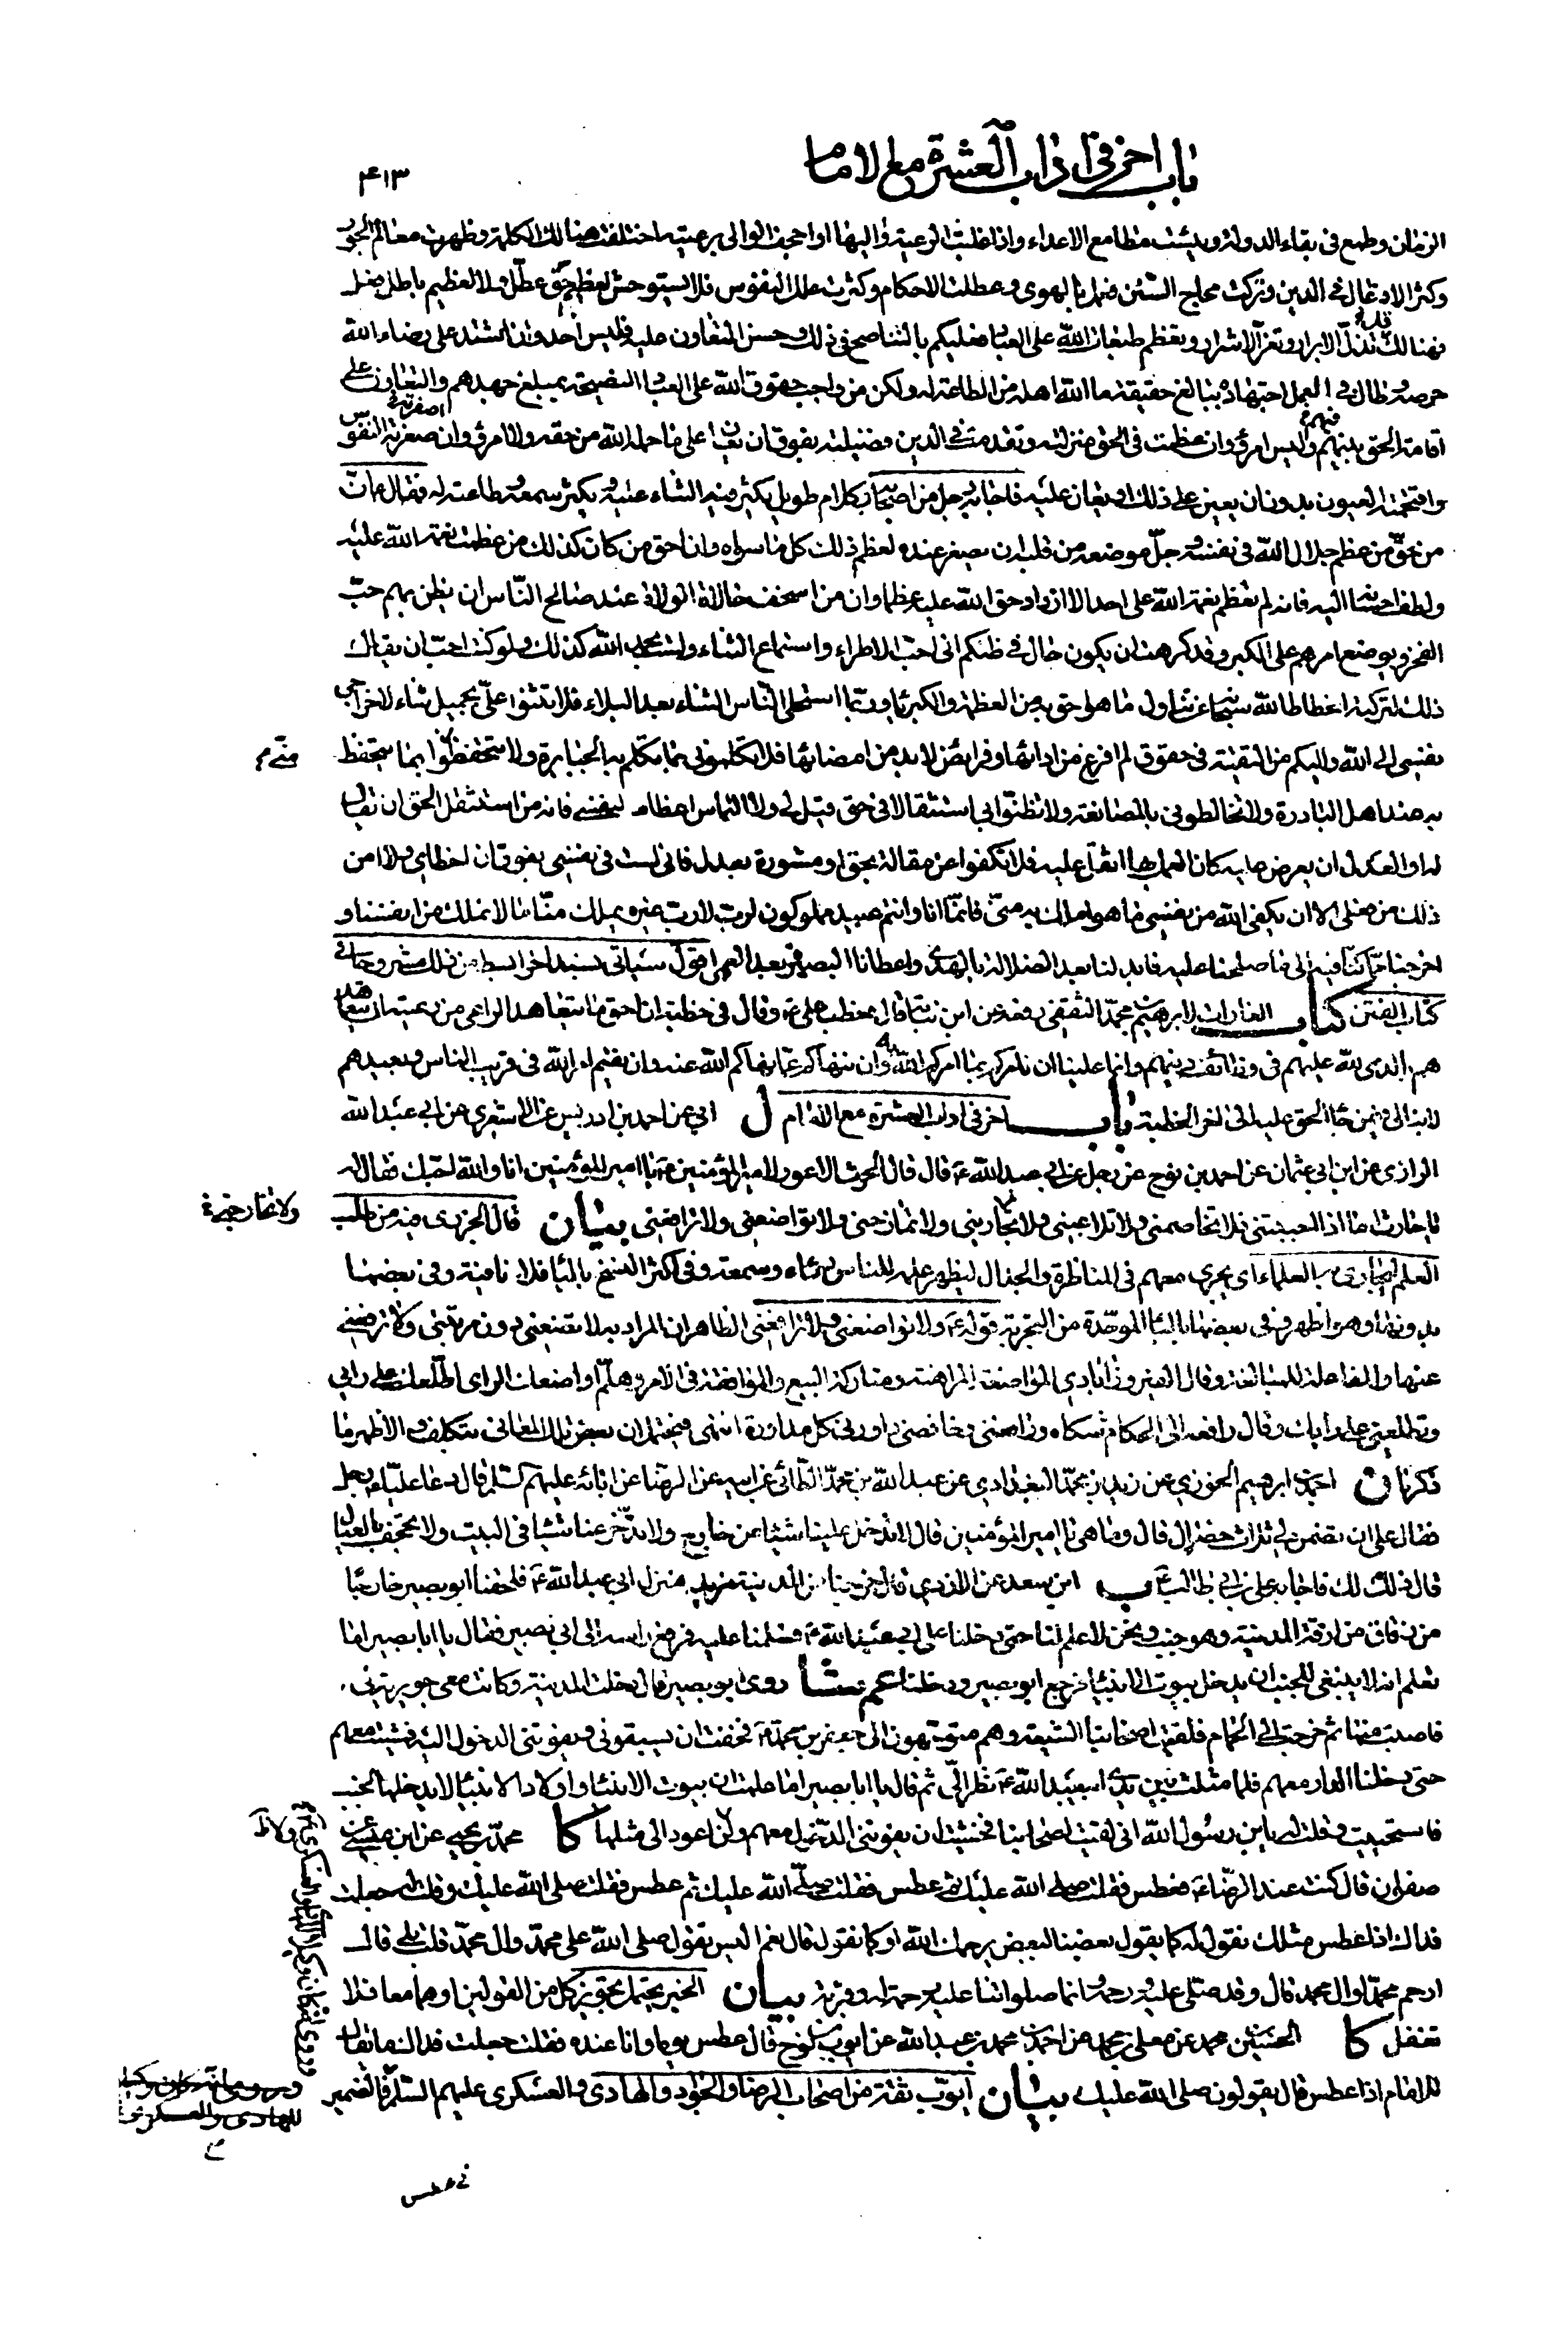 باب اخر فى اداب العشرة مع الامام
۴۱۳
الزمان وطمع فى بقاء الدولة ويئست مطامع الاعداء واذا غلبت الرعية واليها او اجحف الوالى برعيته اختلفت هنالك الكلمة وظهرت معالم الجور
وكثر الادغال فى الدين وتركت محاج السنن فعمل بالهوى وعطلت الاحكام وكثرت علل النفوس فلا يستوحش لعظيم حق عطل ولا لعظيم باطل فعل
فهنالك تذل الابرار وتعز الاشرار وتعظم تبعات الله على العباد فعليكم بالتناصح فى ذلك وحسن التعاون عليه فليس احد وان اشتد على رضاء الله
حرصه وطال فى العمل اجتهاده ببالغ حقيقة ما الله اهله من الطاعة له ولكن من واجب حقوق الله على العباد النصيحة بمبلغ جهدهم والتعاون على
اقامة الحق بينهم وليس امرؤ وان عظمت فى الحق منزلته وتقدمت فى الدين فضيلته بفوق ان يعان على ما حمله الله من حقه ولا امرؤ وان صغرته النفوس
واقتحمته العيون بدون ان يعين على ذلك او يعان عليه فاجابه رجل من اصحابه بكلام طويل يكثر فيه الثناء عليه ويذكر سمعه وطاعته له فقال ع ان
من حق من عظم جلال الله فى نفسه وجل موضعه من قلبه ان يصغر عنده لعظم ذلك كل ما سواه وان احق من كان كذلك من عظمت نعمة الله عليه
ولطف احسانه اليه فانه لم تعظم نعمة الله على احد الا ازداد حق الله عليه عظما وان من اسخف حالات الولاة عند صالح الناس ان يظن بهم حب
الفخر ويوضع امرهم على الكبر وقد كرهت ان يكون جال فى ظنكم انى احب الاطراء واستماع الثناء ولست بحمد الله كذلك ولو كنت احب ان يقال
ذلك لتركته انحطاطا لله سبحانه عن تناول ما هو احق به من العظمة والكبرياء وربما استحلى الناس الثناء بعد البلاء فلا تثنوا على بجميل ثناء لاخراجى
نفسى الى الله واليكم من التقية فى حقوق لم افرغ من ادائها وفرائض لابد من امضائها فلا تكلمونى بما تكلم به الجبابرة ولا تتحفظوا منى بما يتحفظ
به عند اهل البادرة ولا تخالطونى بالمصانعة ولا تظنوا بى استثقالا فى حق قيل لى ولا التماس اعظام لنفسى فانه من استثقل الحق ان يقال
له او العدل ان يعرض عليه كان العمل بهما اثقل عليه فلا تكفوا عن مقالة بحق او مشورة بعدل فانى لست فى نفسى بفوق ان اخطئ ولا امن
ذلك من فعلى الا ان يكفى الله من نفسى ما هو املك به منى فانما انا وانتم عبيد مملوكون لرب لا رب غيره يملك منا ما لا نملك من انفسنا و
اخرجنا مما كنا فيه الى ما صلحنا عليه فابدلنا بعد الضلالة بالهدى واعطانا البصيرة بعد العمى اقول سياتى بسند اخر ابسط من ذلك مشروحا فى
كتاب الفتن كتاب الغارات لابرهيم بن محمد الثقفى رفعه عن ابن نباتة قال خطب على ع وقال فى خطبة ان احق ما يتعاهد الراعى من رعيته ان يتعا
هدهم بالذى لله عليهم فى وظائف دينهم وانما علينا ان نامركم بما امركم الله به وان ننهاكم عما نهاكم الله عنه وان نقيم امر الله فى قريب الناس وبعيدهم
لا نبالى فيمن جاء الحق عليه الى اخر الخطبة باب اخر فى اداب العشرة مع الامام ل ابى عن احمد بن ادريس عن الاشعرى عن ابى عبد الله
الرازى عن ابن ابى عثمان عن احمد بن نوح عن رجل عن ابى عبد الله ع قال قال الحرث الاعور لامير المؤمنين ع يا امير المؤمنين انا والله احبك فقال له
يا حارث اما اذا احببتنى فلا تخاصمنى ولا تلاعبنى ولا تجارينى ولا تمازحنى ولا تواضعنى ولا ترافعنى بيان قال الجزرى فيه من طلب
العلم ليجارى به العلماء اى يجرى معهم فى المناظرة والجدال ليظهر علمه للناس رياء وسمعة وفى اكثر النسخ بالياء فلا نافية وفى بعضها
بدونها وهو اظهر وفى بعضها بالباء الموحدة من التجربة قوله ع ولا تواضعنى ولا ترافعنى الظاهر ان المراد به لا تضعنى دون مرتبتى ولا ترفعنى
عنها والمفاعلة للمبالغة وقال الفيروزابادى المواضعة المراهنة ومتاركة البيع والموافقة فى الامر وهلم اواضعك الراى اطلعك على رايى
وتطلعنى على رايك وقال رافعه الى الحكام شكاه ورافعنى وخافضنى داورنى كل مداورة انتهى فيحتمل ان بعض تلك المعانى بتكلف والاظهر ما
ذكرنا ن احمد بن ابرهيم الخوزى عن زيد بن محمد البغدادى عن عبد الله بن محمد الطائى عن ابيه عن الرضا عن ابائه عليهم السلام قال دعا عليا ع رجل
فقال على ان تضمن لى ثلاث خصال قال وما هى يا امير المؤمنين قال لا تدخل علينا شيئا من خارج ولا تدخر عنا شيئا فى البيت ولا تجحف بالعيال
قال ذلك لك فاجابه على بن ابى طالب ع ب ابن سعد عن الازدى قال خرجنا من المدينة نريد منزل ابى عبد الله ع فلحقنا ابو بصير خارجا
من زقاق من ازقة المدينة وهو جنب ونحن لا علم لنا حتى دخلنا على ابى عبد الله ع فسلمنا عليه فرفع راسه الى ابى بصير فقال يا ابا بصير اما
تعلم انه لا ينبغى للجنب ان يدخل بيوت الانبياء فرجع ابو بصير ودخلنا شا روى ابو بصير قال دخلت المدينة وكانت معى جويرية لى
فاصبت منها ثم خرجت الى الحمام فلقيت اصحابنا الشيعة وهم متوجهون الى جعفر بن محمد ع فخفت ان يسبقونى ويفوتنى الدخول اليه فمشيت معهم
حتى دخلنا الدار معهم فلما مثلت بين يدى ابى عبد الله ع نظر الى ثم قال يا ابا بصير اما علمت ان بيوت الانبياء واولاد الانبياء لا يدخلها الجنب
فاستحييت وقلت له يا ابن رسول الله انى لقيت اصحابنا فخشيت ان يفوتنى الدخول معهم ولن اعود الى مثلها كا محمد بن يحيى عن ابن عيسى عن
صفوان قال كنت عند الرضا ع فعطس فقلت صلى الله عليك ثم عطس فقلت صلى الله عليك ثم عطس فقلت صلى الله عليك وقلت له جعلت
فداك اذا عطس مثلك نقول له كما يقول بعضنا لبعض يرحمك الله او كما نقول قال نعم اليس تقول صلى الله على محمد وال محمد قلت بلى قال
ارحم محمدا وال محمد قال وقد صلى عليه ورحمه وانما صلواتنا عليه رحمة له وقربة بيان الخبر يحتمل تجويز كل من القولين او هما معا فلا
تغفل كا الحسين بن محمد عن معلى بن محمد عن احمد بن محمد بن عبد الله عن ايوب بن نوح قال عطس يوما وانا عنده فقلت جعلت فداك ما يقال
للامام اذا عطس قال يقولون صلى الله عليك بيان ايوب ثقة من اصحاب الرضا والجواد والهادى والعسكرى عليهم السلام فالضمير
فى عطس